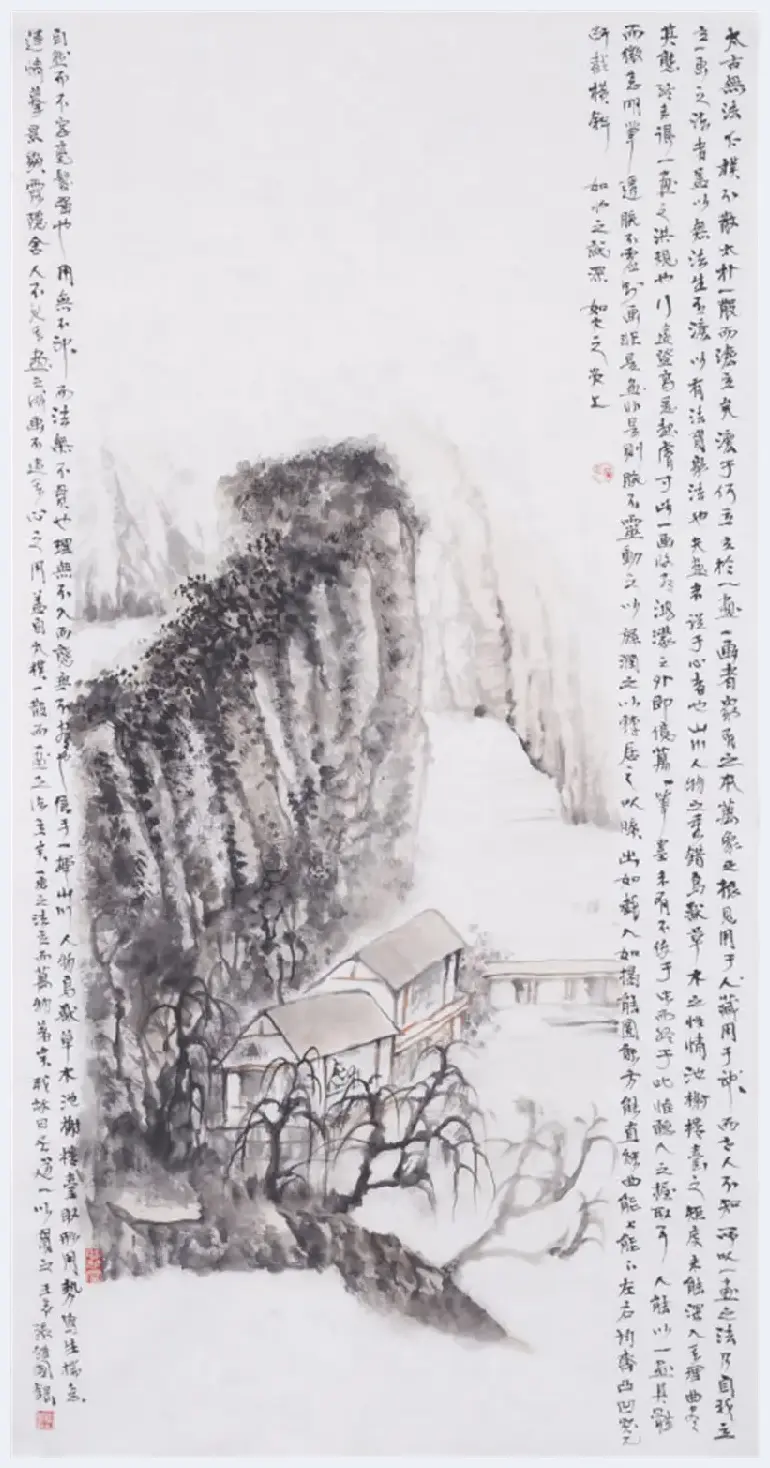 太古無法太樸不散太朴一散而法立矣法于何立立於一画一画者衆有之本萬象之根見用于人藏用于神而世人不知所以一画之法乃自我立
立一画之法者蓋以無法生有法以有法貫衆法也夫画者從于心者也山川人物之秀錯鳥獸草木之性情池榭樓臺之矩度未能深入其理曲尽
其態終未得一画之洪規也行遠登高悉起膚寸此一画收尽鴻濛之外即億萬萬筆墨未有不始于此而終于此惟聽人之握取耳人能以一画具體
而微意明筆透腕不虛則画非是画非是則腕不靈動之以旋潤之以轉居之以曠出如截入如揭能圓能方能直能曲能上能下左右均齊凸凹突兀
斷截橫斜如水之就深如火之炎上
自然而不容毫髮强也用無不神而法無不貫也理無不入而態無不尽也信手一揮山川人物鳥獸草木池榭樓臺取形用勢寫生揣意
運情摹景顯露隱含人不見其画之成画不違其心之用蓋自太樸一散而一画之法立矣一画之法立而萬物著矣我故曰吾道一以貫之